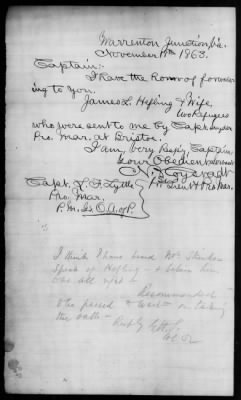 Warrenton Junction, Va.
November 11th 1863.
Captain:
I have the honor of forward-
ing to you.
James L. Hefling & Wife,
two Refugees
who were sent to me by Capt.
Pro. Mar. at Bristoe.
I am, Very Resp'y, Captain,
Your Obedient Servant
Capt.
Pro. Mar.
P.M. A. of P.
I think I have heard Mr.
Speak of Hefling - & believe him
was all right -
Recommended
to be passed & East on taking
the oath -
Resply